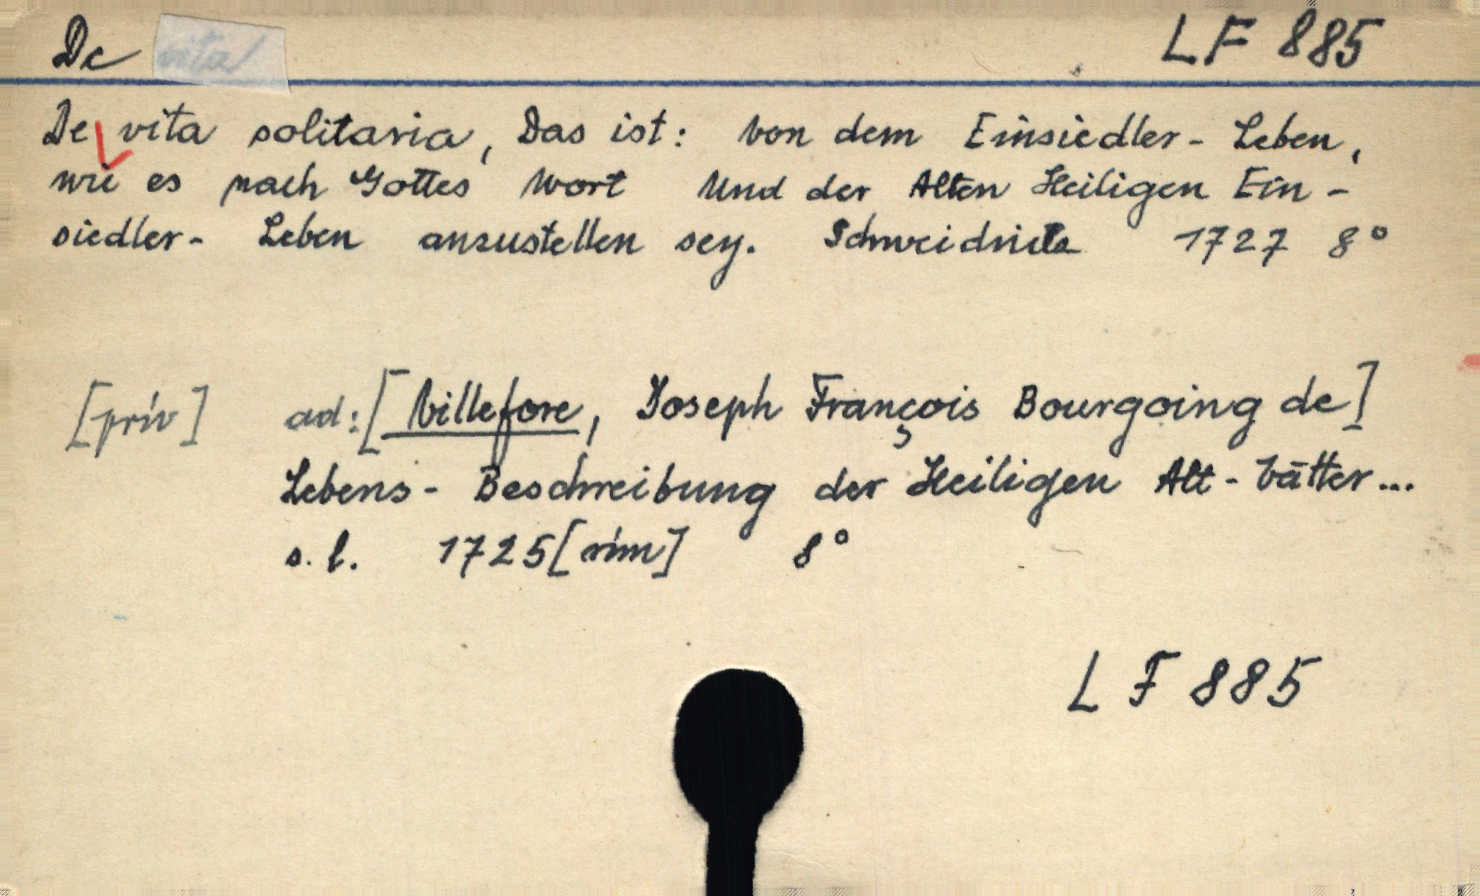 De vita LF 885
De vita solitaria, Das ist: Von dem Einsiedler- Leben,
wie es nach Gottes Wort Und der Alten Heiligen Ein-
siedler- Leben anzustellen sey. Schweidnitz 1727 8°
[priv] ad: [Villefore, Joseph François Bourgoing de]
Lebens- Beschreibung der Heiligen Alt- Vätter...
s. l. 1725 [rim] 8°
LF 885